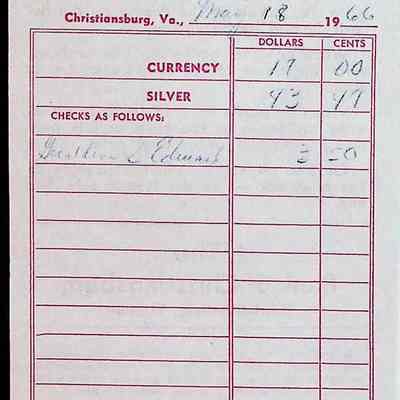 Christiansburg, Va., May 18 1966
DOLLARS CENTS
CURRENCY 17 00
SILVER 43 49
CHECKS AS FOLLOWS:
S Edwards 3 50